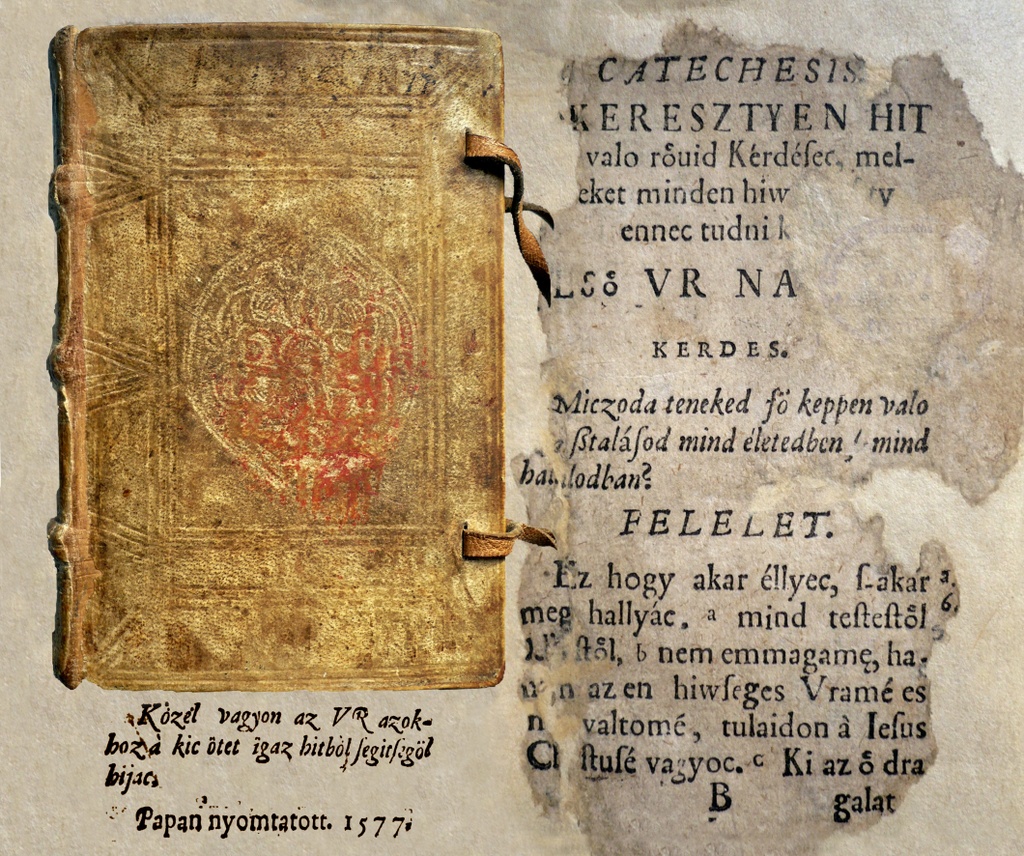 Közel vagyon az VR azok-
hoz à kic ötet igaz hitböl ſegitſegöl
hijac.
Papan nyomtatott. 1577.
CATECHESIS
KERESZTYEN HIT
valo rőuid Kérdéſec, mel-
eket minden hiw
ennec tudni k
LSő VR NA
KERDES.
Miczoda teneked fö keppen valo
ßtaláſod mind életedben, mind
halalodban?
FELELET.
Ez hogy akar éllyec, ſ-akár a.
meg hallyác. a mind teſteſtől 6.
ſtől, b nem emmagamę, ha-
az en hiwſeges Vramé es
valtomé, tulaidon à Ieſus
ſtuſé vagyoc. c Ki az ő dra
B galat